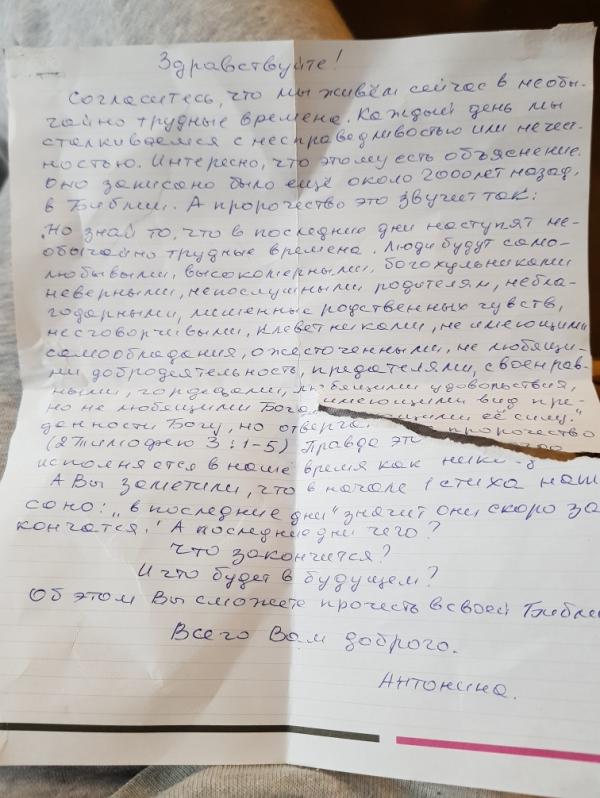 Здравствуйте!
Согласитесь, что мы живём сейчас в необы-
чайно трудные времена. Каждый день мы
сталкиваемся с несправедливостью или нечест-
ностью. Интересно, что этому есть объяснение.
Оно записано было ещё около 2000 лет назад,
в Библии. А пророчество это звучит так:
"Но знай то, что в последние дни наступят не-
обычайно трудные времена. Люди будут само-
любивыми, высокомерными, богохульниками
неверными, непослушными родителям, небла-
годарными, лишенные родственных чувств,
несговорчивыми, клеветниками, не имеющими
самообладания, ожесточенными, не любящи-
ми добродетельность, предателями, своенрав-
ными, гордецами, любящими удовольствия,
но не любящими Бога, имеющими вид пре-
данности Богу, но отверга ющими её силу."
(2 Тимофею 3:1-5) Правда это пророчество
исполняется в наше время как
А Вы заметили, что в начале 1 стиха
сано: "в последние дни" значит они скоро за
кончатся! А последние дни чего?
Что закончится?
И что будет в будущем?
Об этом Вы сможете прочесть в своей Библи
Всего Вам доброго.
Антонина.